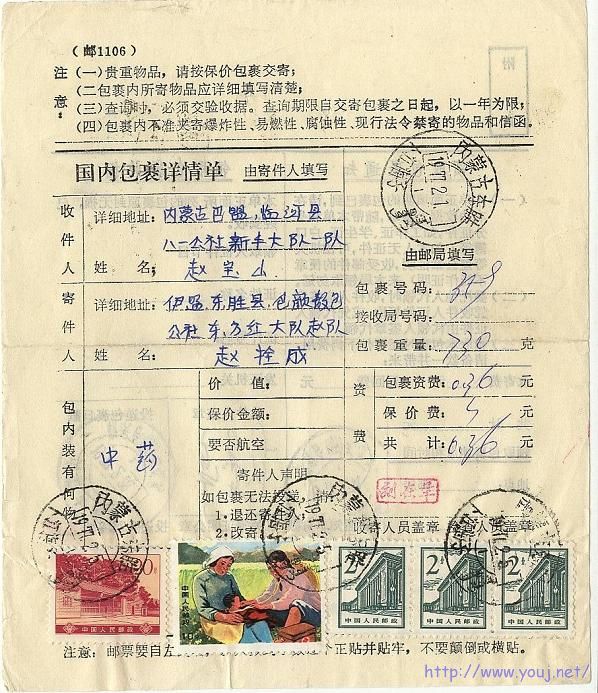 （邮1106）
附
注意：
（一）贵重物品，请按保价包裹交寄；
（二）包裹内所寄物品应详细填写清楚；
（三）查询时，必须交验收据。查询期限自交寄包裹之日起，以一年为限；
（四）包裹内不准夹寄爆炸性、易燃性、腐蚀性、现行法令禁寄的物品和信函
国内包裹详情单 由寄件人填写
内蒙古东胜
收件人
详细地址：内蒙古巴盟，临河县
八一公社新丰大队一队
姓名：赵宝山
寄件人
详细地址：伊盟东胜县
公社东方红大队赵队
姓名：赵拴成
由邮局填写
包裹号码：
接收局号码：
包裹重量：730 克
包内装有何物
中药
价值：
保价金额：
要否航空
资费
包裹资费：0.36 元
保价费： 元
共计：0.36 元
寄件人声明
如包裹无法投递，
1.退还寄件人
2.改寄
收寄人员盖章
员盖章
内蒙古东胜
内蒙古
中国人民邮政
中国人民邮政
10
2分
中国人民邮政
2分
中国人民邮政
2分
中国人民邮政
注意：邮票要自左
正贴并贴牢，不要颠倒或横贴。
http://www.youj.net/